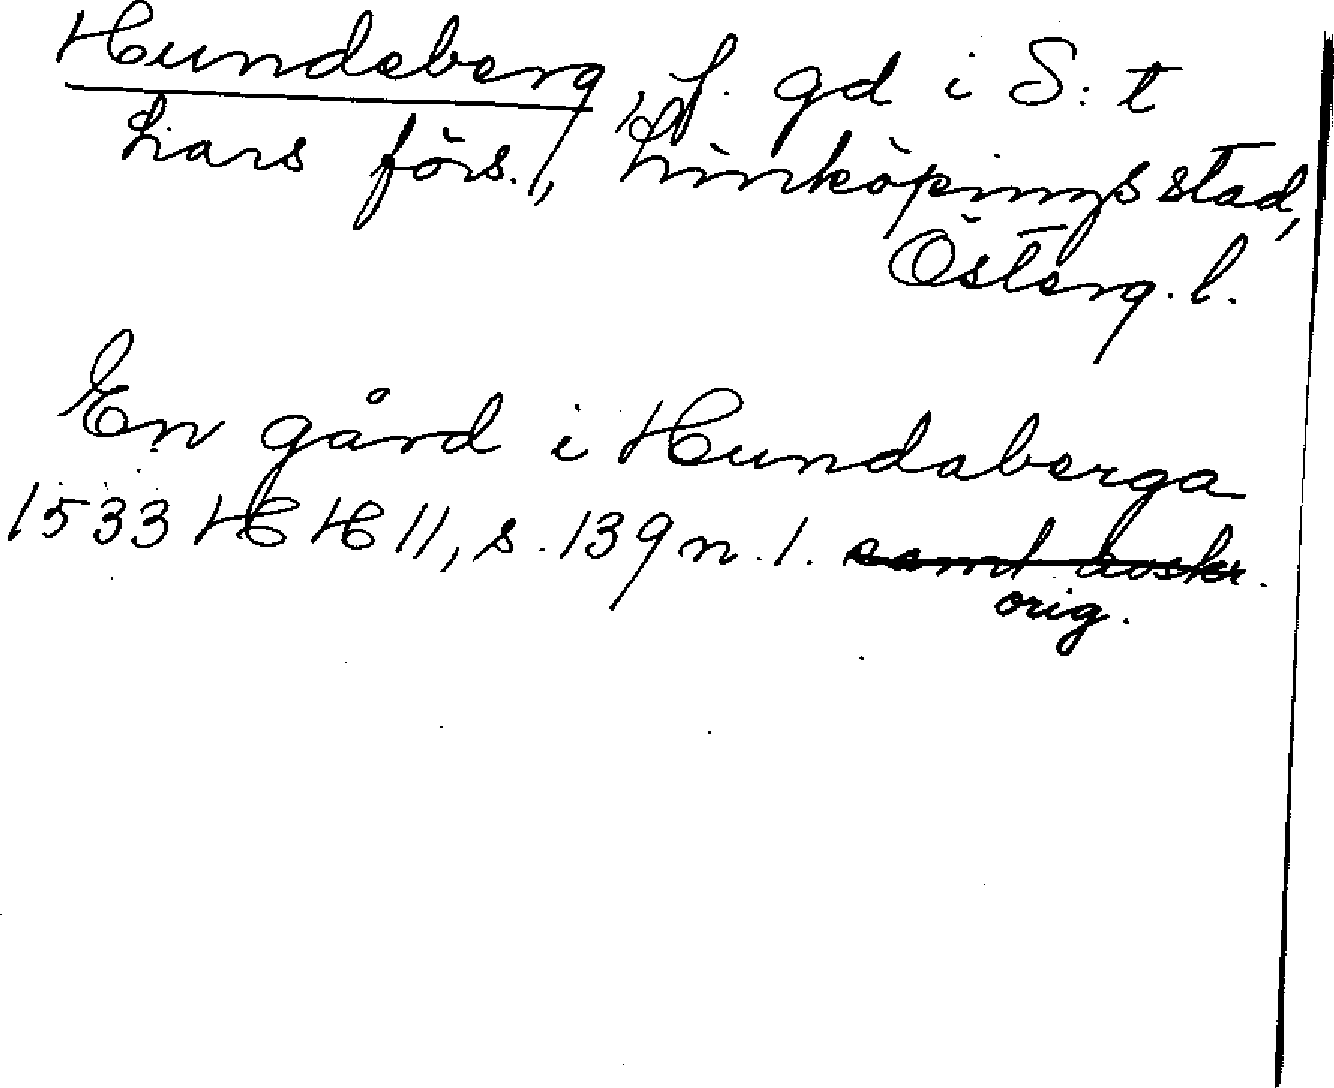 Hundeberg, f. gd i S:t
Lars förs., Linköpings stad,
Österg. l.
En gård i Hundaberga
1533 HH 11, s. 139 n. 1. samt avskr.
orig.